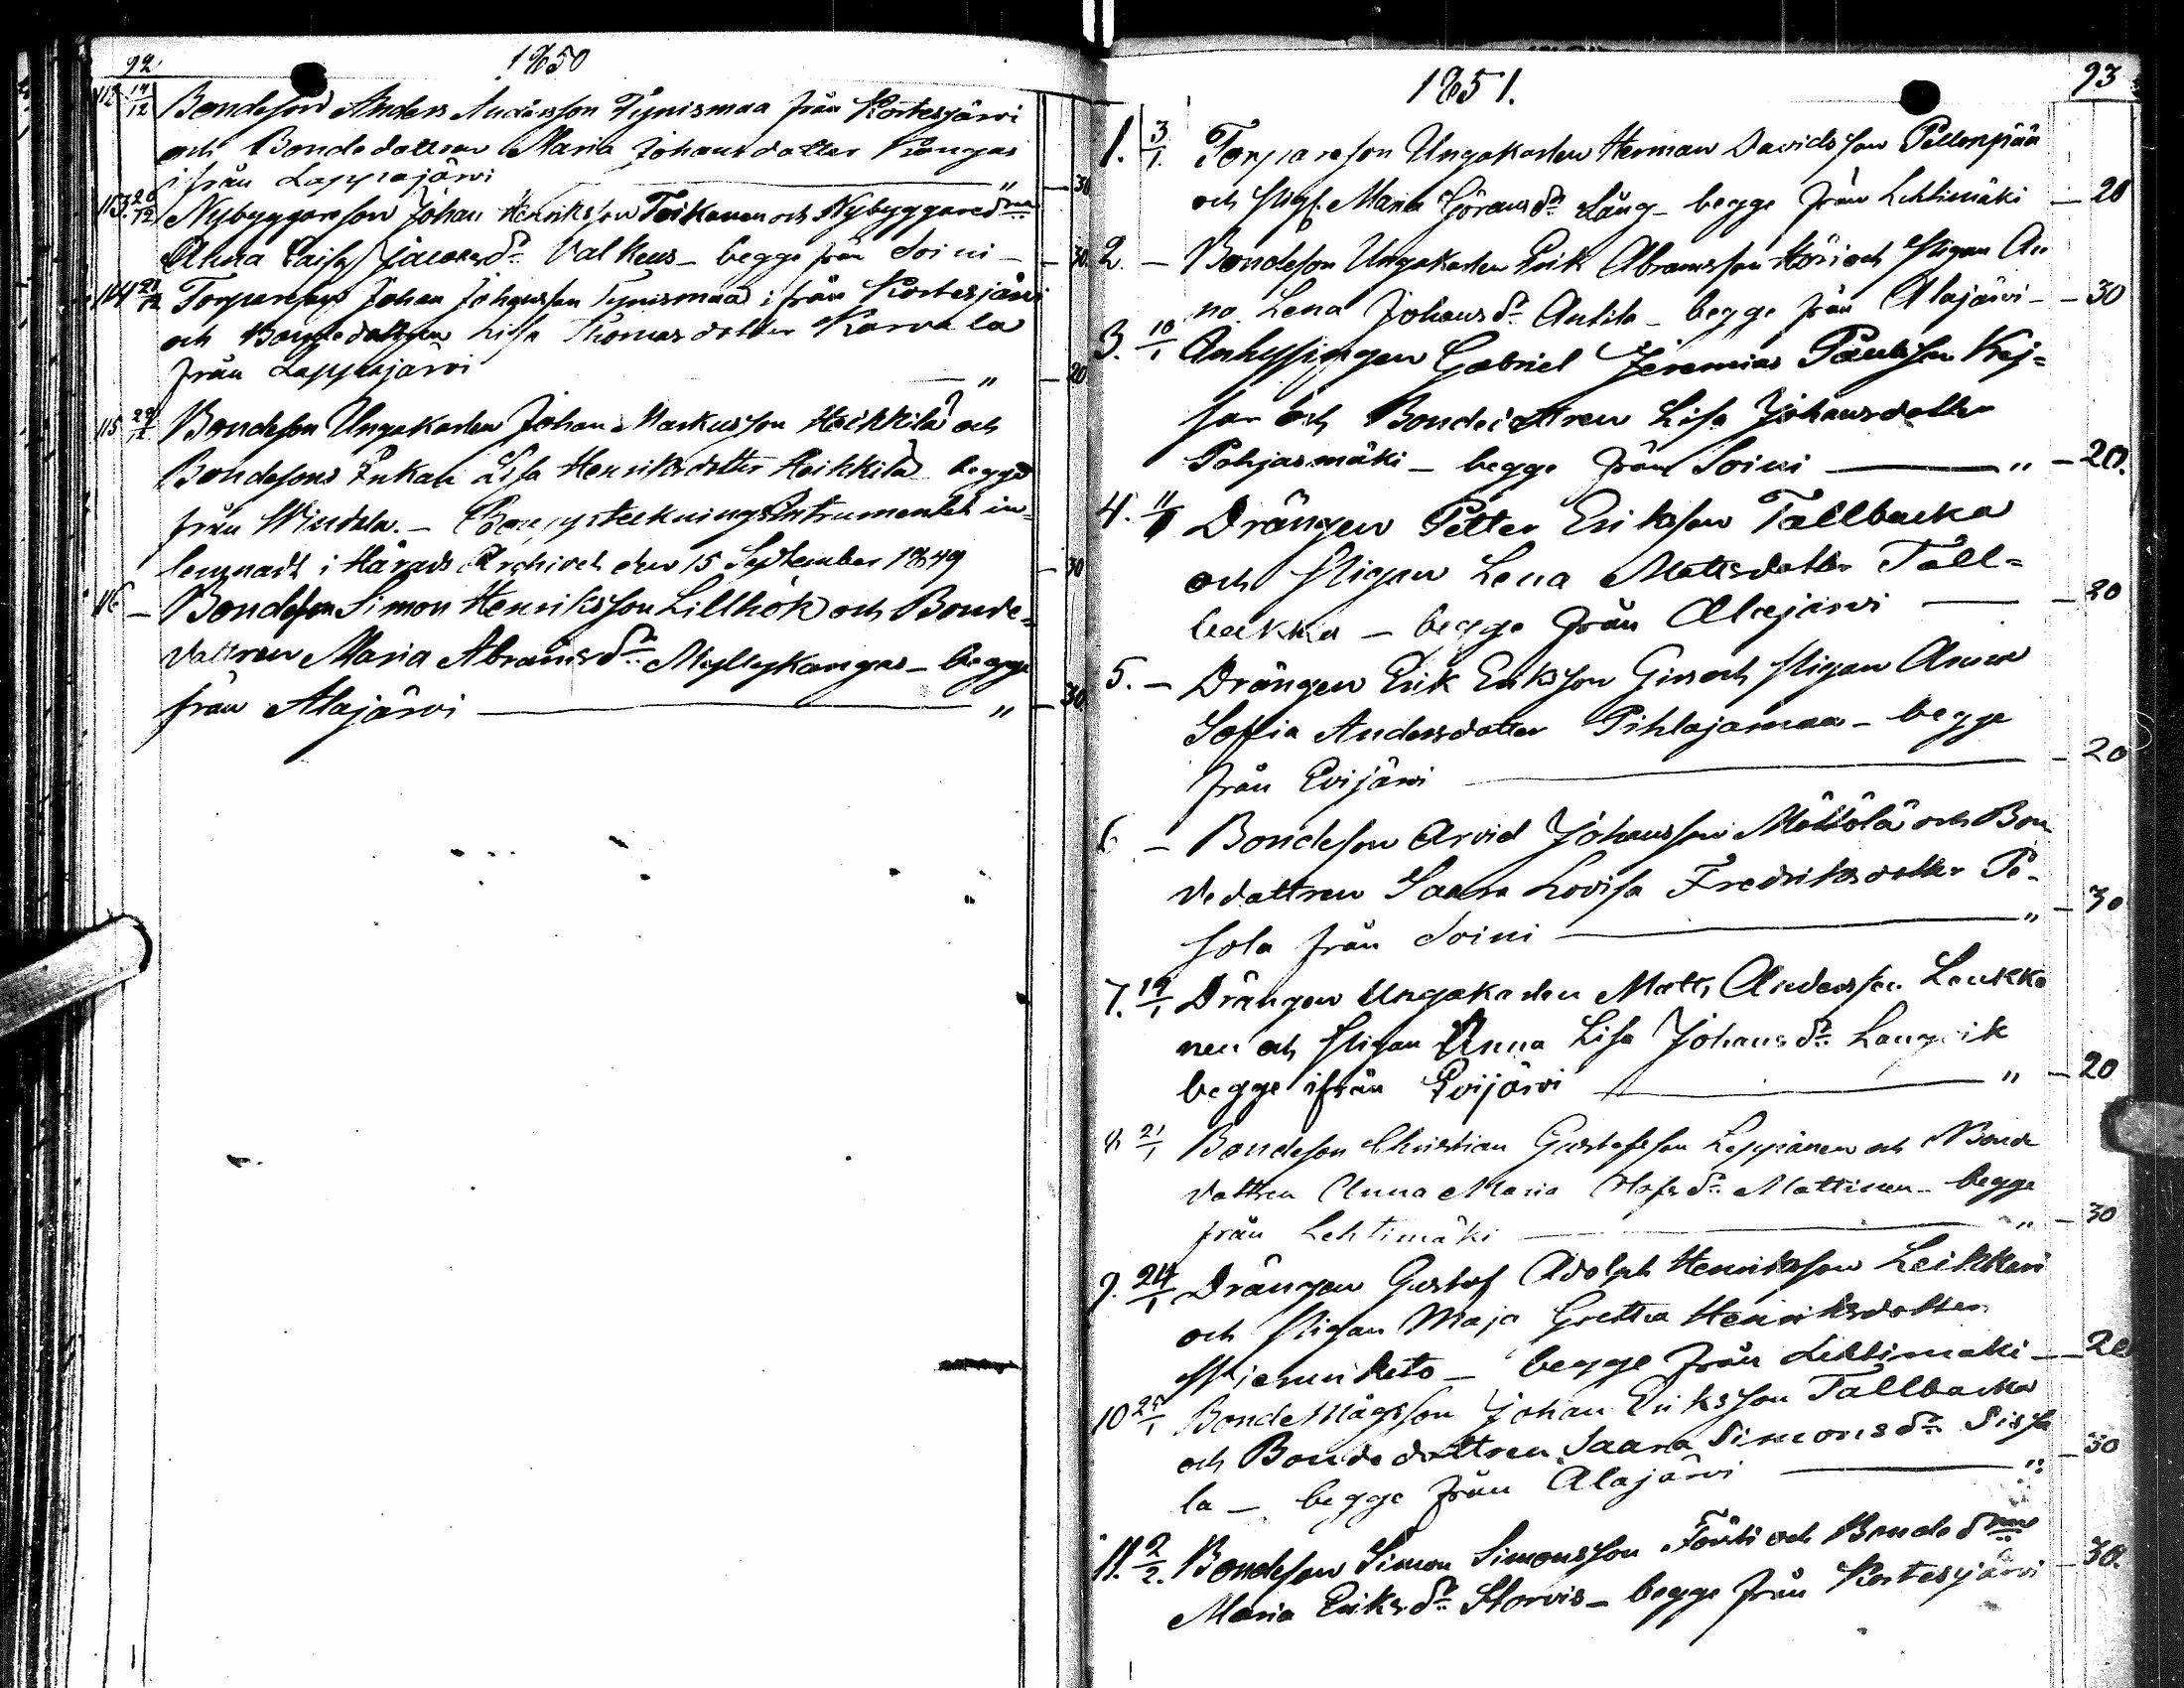 92
1850
112 14/12 Bondeson Anders Andersson Tynismaa från Kortesjärvi
och Bondedottren Maria Johansdotter Kangas
ifrån Lappajärvi — " — 30
113. 26/12 Nybyggareson Johan Henriksson Toikanen och Nybyggaredrn
Anna Caisa Jacobsdr Valkeus – begge från Soini — 30.
114 /12 Torpareson Johan Johansson Tynismaa ifrån Kortesjärvi
och Bondedottren Lisa Thomasdotter Karvala
från Lappajärvi — " — 20
115 29/12 Bondeson Ungakarlen Johan Markusson Heikkilä och
Bondesons Enkan Lisa Henriksdotter Heikkilä begge
från Windala. –
lemnadt i Härads Archivet den 15 September 1849 — 30
116 – Bondeson Simon Henriksson Lillhök och Bonde-
dottren Maria Abramsdr Myllykangas – begge
från Alajärvi — " — 30
93
1851.
1. 3/1. Torpareson Ungakarlen Herman Davidsson Pellonpää
och Pigan Maria Göransdr Lång – begge från Lehtimäki — 20
2. – Bondeson Ungakarlen Erik Abramsson Höri och Pigan An
na Lena Johansdr Antila – begge från Alajärvi – — 30
3. 10/1 Gabriel Jeremias Paulsson Kej-
sar och Bondedottren Lisa Johansdotter
Pohjasmäki – begge från Soini — " — 20.
4. 11/1 Drängen Petter Eriksson Tallbacka
och Pigan Lena Mattsdotter Tall-
backa – begge från Alajärvi — — 20
5. – Drängen Erik Eriksson och Pigan Anna
Sofia Andersdotter Pihlajamaa – begge
från Evijärvi — — 20
6 – Bondeson Arvid Johansson Möttölä och Bon
dedottren Saara Lovisa Fredriksdotter Pe-
sola från Soini — " — 30
7. 19/1 Drängen Ungakarlen Matts Andersson Laukko
nen och Pigan Anna Lisa Johansdr Långvik
begge ifrån Evijärvi — " — 20
8 21/1 Bondeson Christian Gustafsson Leppänen och Bonde
dottren Anna Maria Olofsdr Mattinen – begge
från Lehtimäki — " — 30
9. 24/1 Drängen Gustaf Adolph Henriksson Leikkari
och Pigan Maja Gretha Henriksdotter
– begge från Lehtimäki — 20
10 25/1 Bondemågsson Johan Eriksson Tallbacka
och Bondedottren Saara Simonsdr Sissa
la – begge från Alajärvi — " — 30
11. 2/2. Bondeson Simon Simonsson Förti och Bondedrn
Maria Eriksdr Storvis – begge från Kortesjärvi — 30.